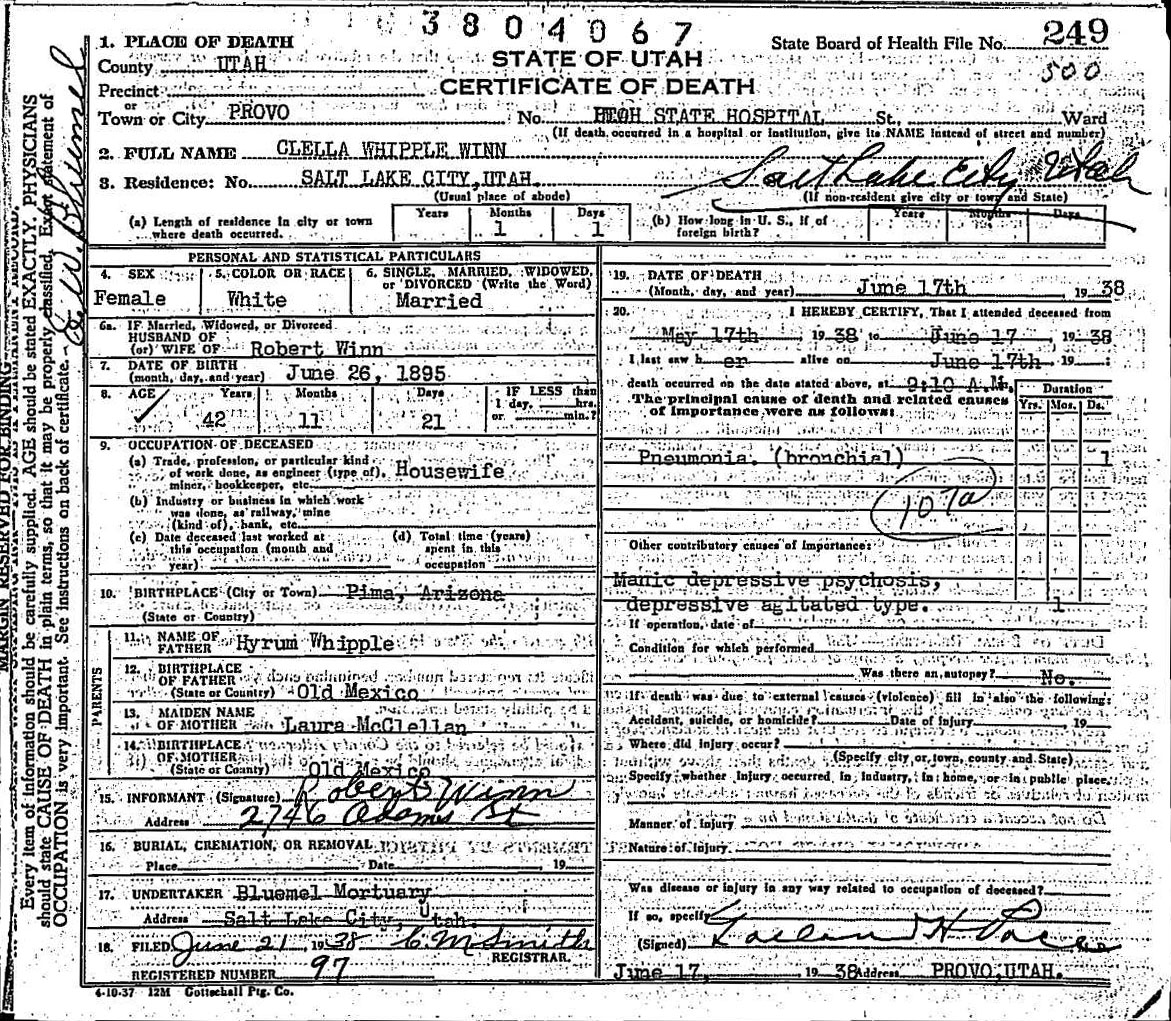 3804067
1. PLACE OF DEATH
STATE OF UTAH
State Board of Health File No. 249
County UTAH
CERTIFICATE OF DEATH
500
Precinct
or
Town or City PROVO No. UTAH STATE HOSPITAL St., Ward
(If death occurred in a hospital or institution, give its NAME instead of street and number)
2. FULL NAME CLELLA WHIPPLE WINN
3. Residence: No. SALT LAKE CITY, UTAH. Salt Lake City Utah
(Usual place of abode) (If non-resident give city or town and State)
(a) Length of residence in city or town where death occurred. Years Months 1 Days 1
(b) How long in U. S., if of foreign birth? Years Months Days
PERSONAL AND STATISTICAL PARTICULARS
4. SEX Female
5. COLOR OR RACE White
6. SINGLE, MARRIED, WIDOWED, or DIVORCED (Write the Word) Married
6a. IF Married, Widowed, or Divorced
HUSBAND OF
(or) WIFE OF Robert Winn
7. DATE OF BIRTH
(month, day, and year) June 26, 1895
8. AGE Years 42 Months 11 Days 21 IF LESS than 1 day, hrs. or min.?
9. OCCUPATION OF DECEASED
(a) Trade, profession, or particular kind
of work done, as engineer (type of), Housewife
miner, bookkeeper, etc.
(b) Industry or business in which work
was done, as railway, mine
(kind of), bank, etc.
(c) Date deceased last worked at
this occupation (month and
year)
(d) Total time (years)
spent in this
occupation
10. BIRTHPLACE (City or Town) Pima, Arizona
(State or Country)
PARENTS
11. NAME OF
FATHER Hyrum Whipple
12. BIRTHPLACE
OF FATHER
(State or Country) Old Mexico
13. MAIDEN NAME
OF MOTHER Laura McClellan
14. BIRTHPLACE
OF MOTHER
(State or Country) Old Mexico
15. INFORMANT (Signature) Robert Winn
Address 2746 Adams St
16. BURIAL, CREMATION, OR REMOVAL
Place Date 19
17. UNDERTAKER Bluemel Mortuary
Address Salt Lake City, Utah.
18. FILED June 21 1938 C M Smith
REGISTRAR.
REGISTERED NUMBER 97
4-10-37 12M Gottschall Ptg. Co.
19. DATE OF DEATH
(Month, day, and year) June 17th 1938
20. I HEREBY CERTIFY, That I attended deceased from
May 17th 1938 to June 17, 1938
I last saw her alive on June 17th 19 :
death occurred on the date stated above, at 9:10 A.M.
The principal cause of death and related causes
of importance were as follows:
Duration
Yrs. Mos. Ds.
Pneumonia (bronchial) 1
107a
Other contributory causes of importance:
Manic depressive psychosis,
depressive agitated type. 1
If operation, date of
Condition for which performed
Was there an autopsy? No.
If death was due to external causes (violence) fill in also the following:
Accident, suicide, or homicide? Date of injury 19
Where did injury occur?
(Specify city or town, county and State)
Specify whether injury occurred in industry, in home, or in public place.
Manner of injury
Nature of injury
Was disease or injury in any way related to occupation of deceased?
If so, specify
(Signed) Garland H. Pace
June 17, 1938 Address PROVO, UTAH.
MARGIN RESERVED FOR BINDING
Every item of information should be carefully supplied. AGE should be stated EXACTLY. PHYSICIANS
should state CAUSE OF DEATH in plain terms, so that it may be properly classified. Exact statement of
OCCUPATION is very important. See instructions on back of certificate.